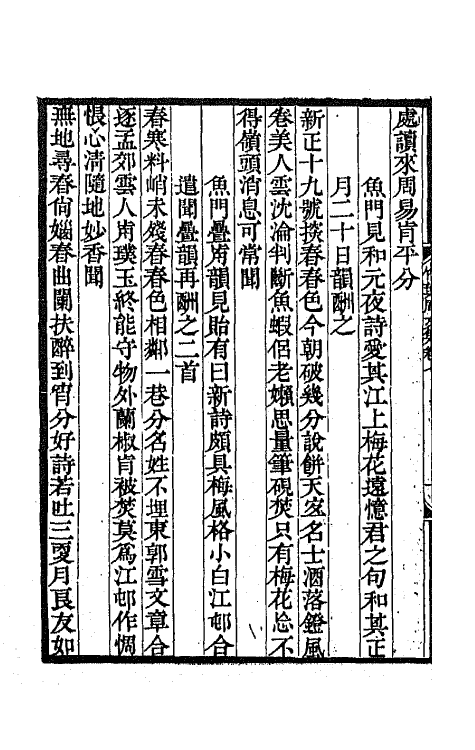 處讀來周易肯平分
魚門見和元夜詩愛其江上梅花遠憶君之句和其正
月二十日韻酬之
新正十九號探春春色今朝破幾分說餅天寒名士酒落鐙風
卷美人雲沈淪判斷魚蝦侶老嬾思量筆硯焚只有梅花忘不
得嶺頭消息可常聞
魚門疊前韻見貽有曰新詩頗具梅風格小白江邨合
遣聞疊韻再酬之二首
春寒料峭未殘春春色相鄰一巷分名姓不埋東郭雪文章合
逐孟郊雲人前璞玉終能守物外蘭椒肯被焚莫爲江邨作惆
悵心清隨地妙香聞
無地尋春尙媚春曲闌扶醉到宵分好詩若吐三更月良友如